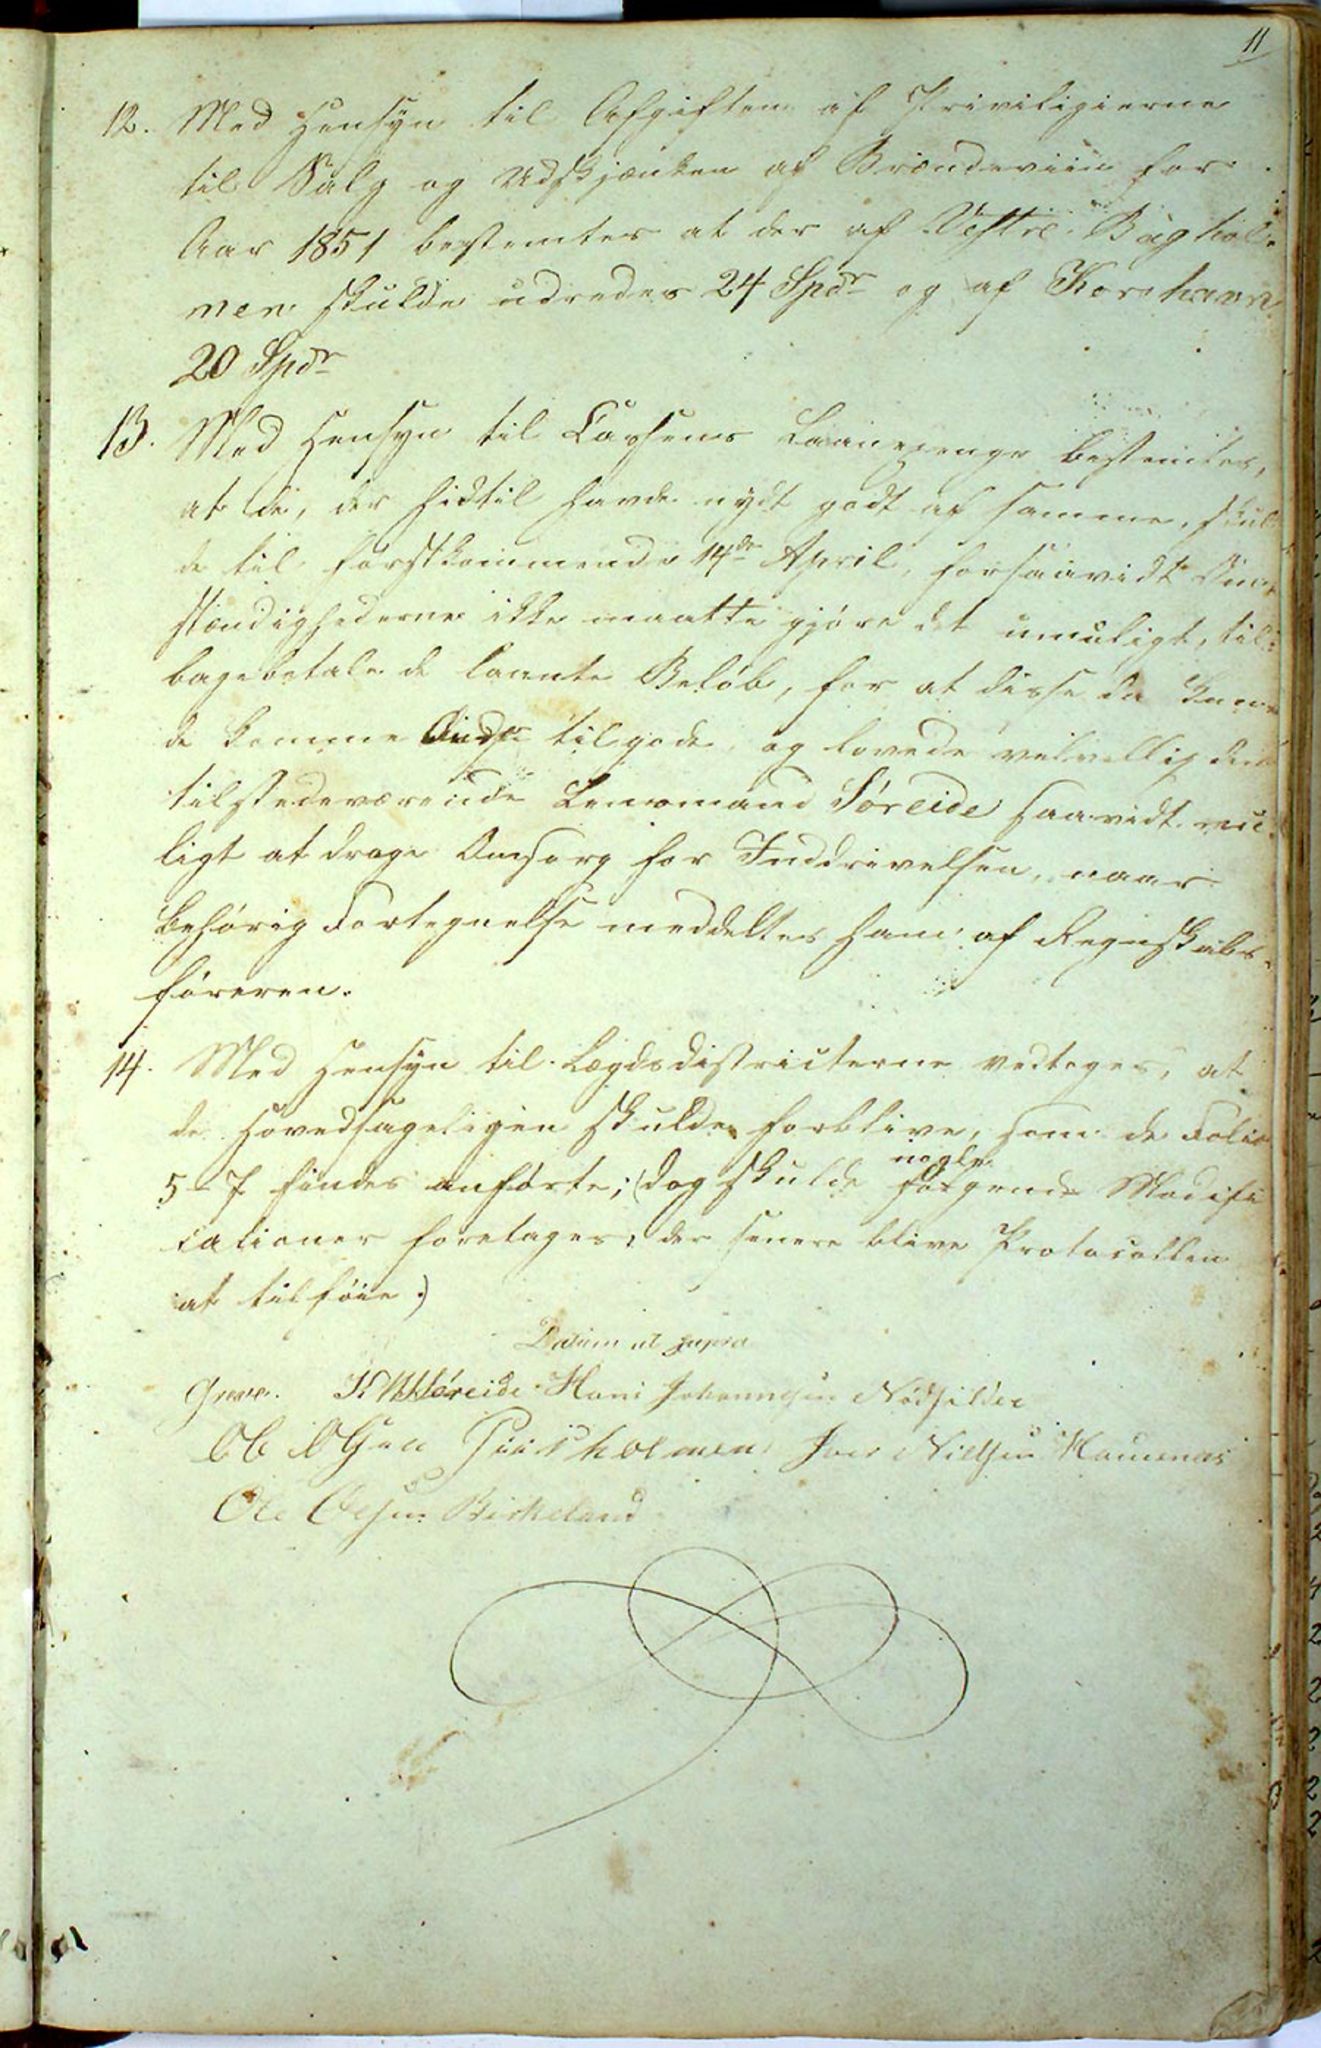 11
12. Med Hensyn til Afgiften af Priviligierne
til Salg og Udskjænken af Brændeviin for
Aar 1851 bestemtes at der af Vestre Baghol-
men skulde udredes 24 Spdr og af Korshavn
20 Spdr
13. Med Hensyn til Cassens Laanepenge bestemtes,
at de, der hidtil havde nydt godt af samme, skul
de til førstkommende 14de April, forsaavidt Om-
stændighederne ikke maatte gjøre det umuligt, til-
bagebetale de laante Beløb, for at disse da kun
de komme Andre tilgode, og lovede velvillig den
tilstedeværende Lensmand Søreide saavidt mu-
ligt at drage Omsorg for Inddrivelsen, naar
behørig Fortegnelse meddeltes ham af Regnskabs-
føreren.
14. Med Hensyn til Lægdsdistricterne vedtoges, at
de hovedsageligen skulde forblive, som de Folio
5-7 findes anførte; (dog skulde nogle Modifi
cationer foretages, der senere blive Protocollen
at tilføie.)
Datum ut supra
Søreide Hans Johannesen
Ole Olsen Iver Nielsen
Ole Olsen Birkeland